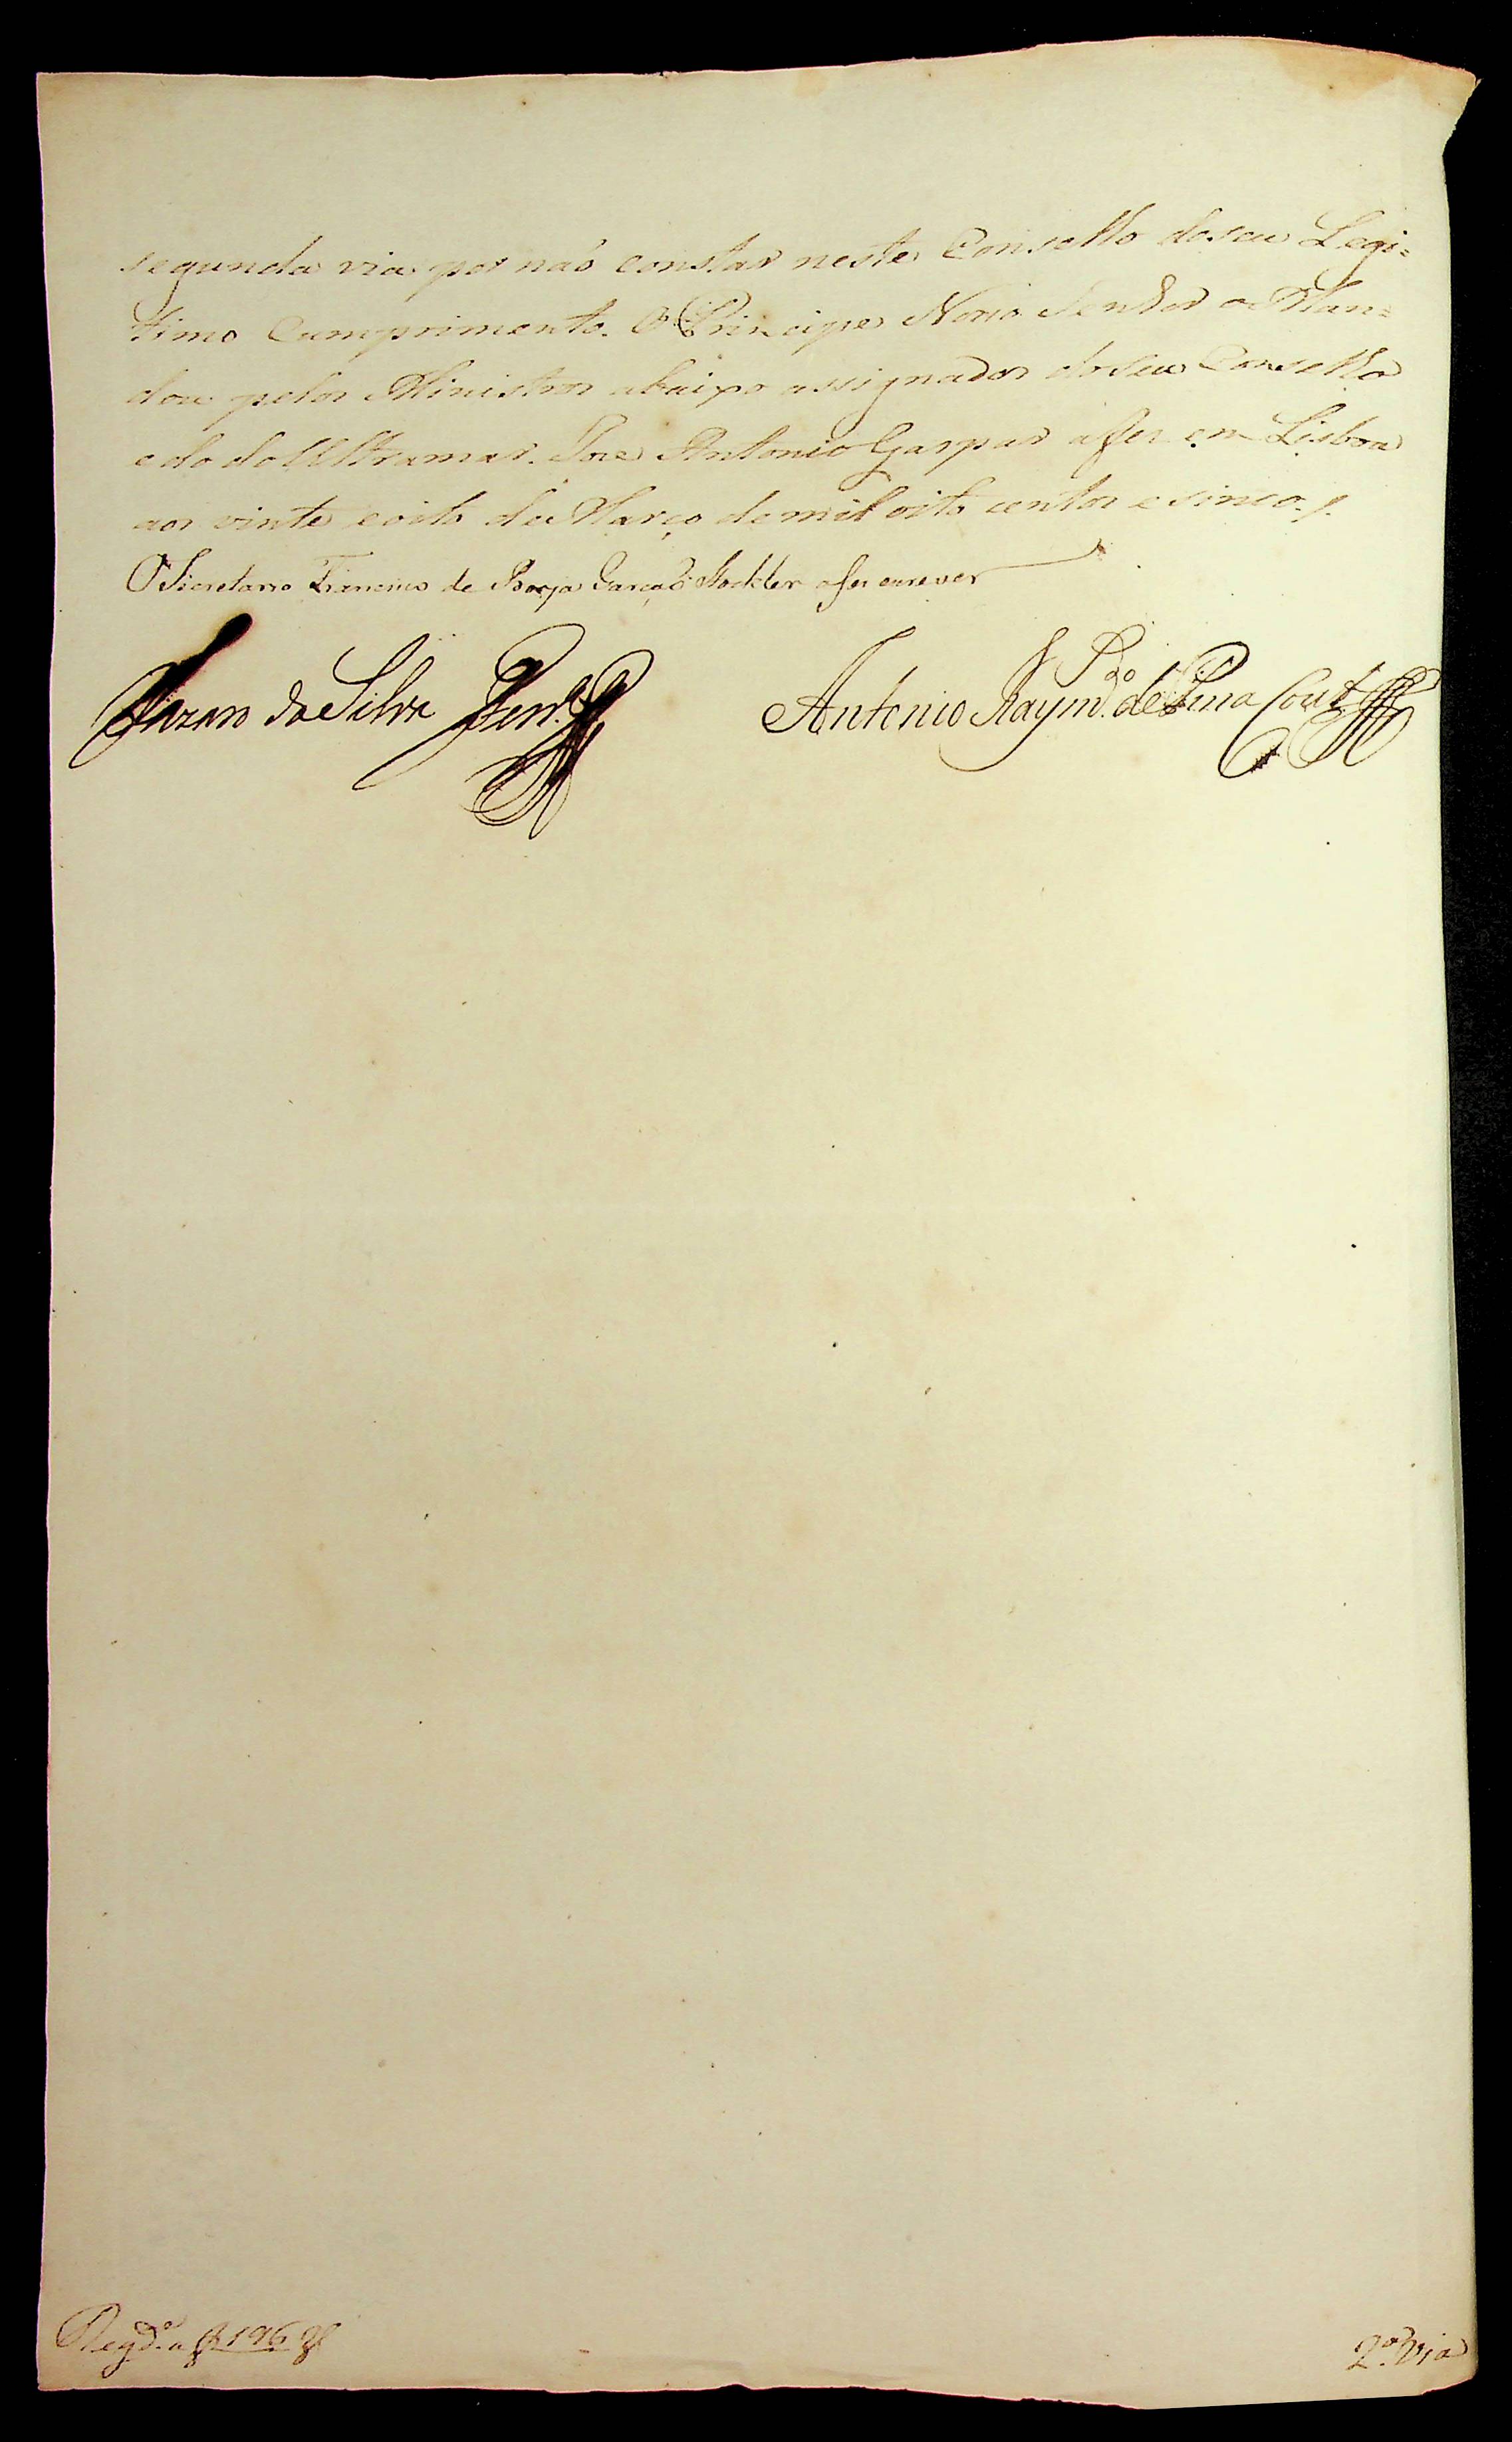 segunda via por naõ constar neste Conselho do seu Legi=
timo Cumprimento. O Principe Nosso Senhor o Man=
dou pelos Ministros abaixo assignados do seu Conselho
e do do Ultramar. Joze Antonio Gaspar a fes em Lisboa
aos vinte e oito de Março de mil oito centos e sinco. /.
O Secretario Francisco de Borja Garçaõ Stockler a fes escrever
Lazaro da Silva Ferr.ª
Antonio Raym.do de Pina Cout.º
Regd.ª a f 196
2.ª Via